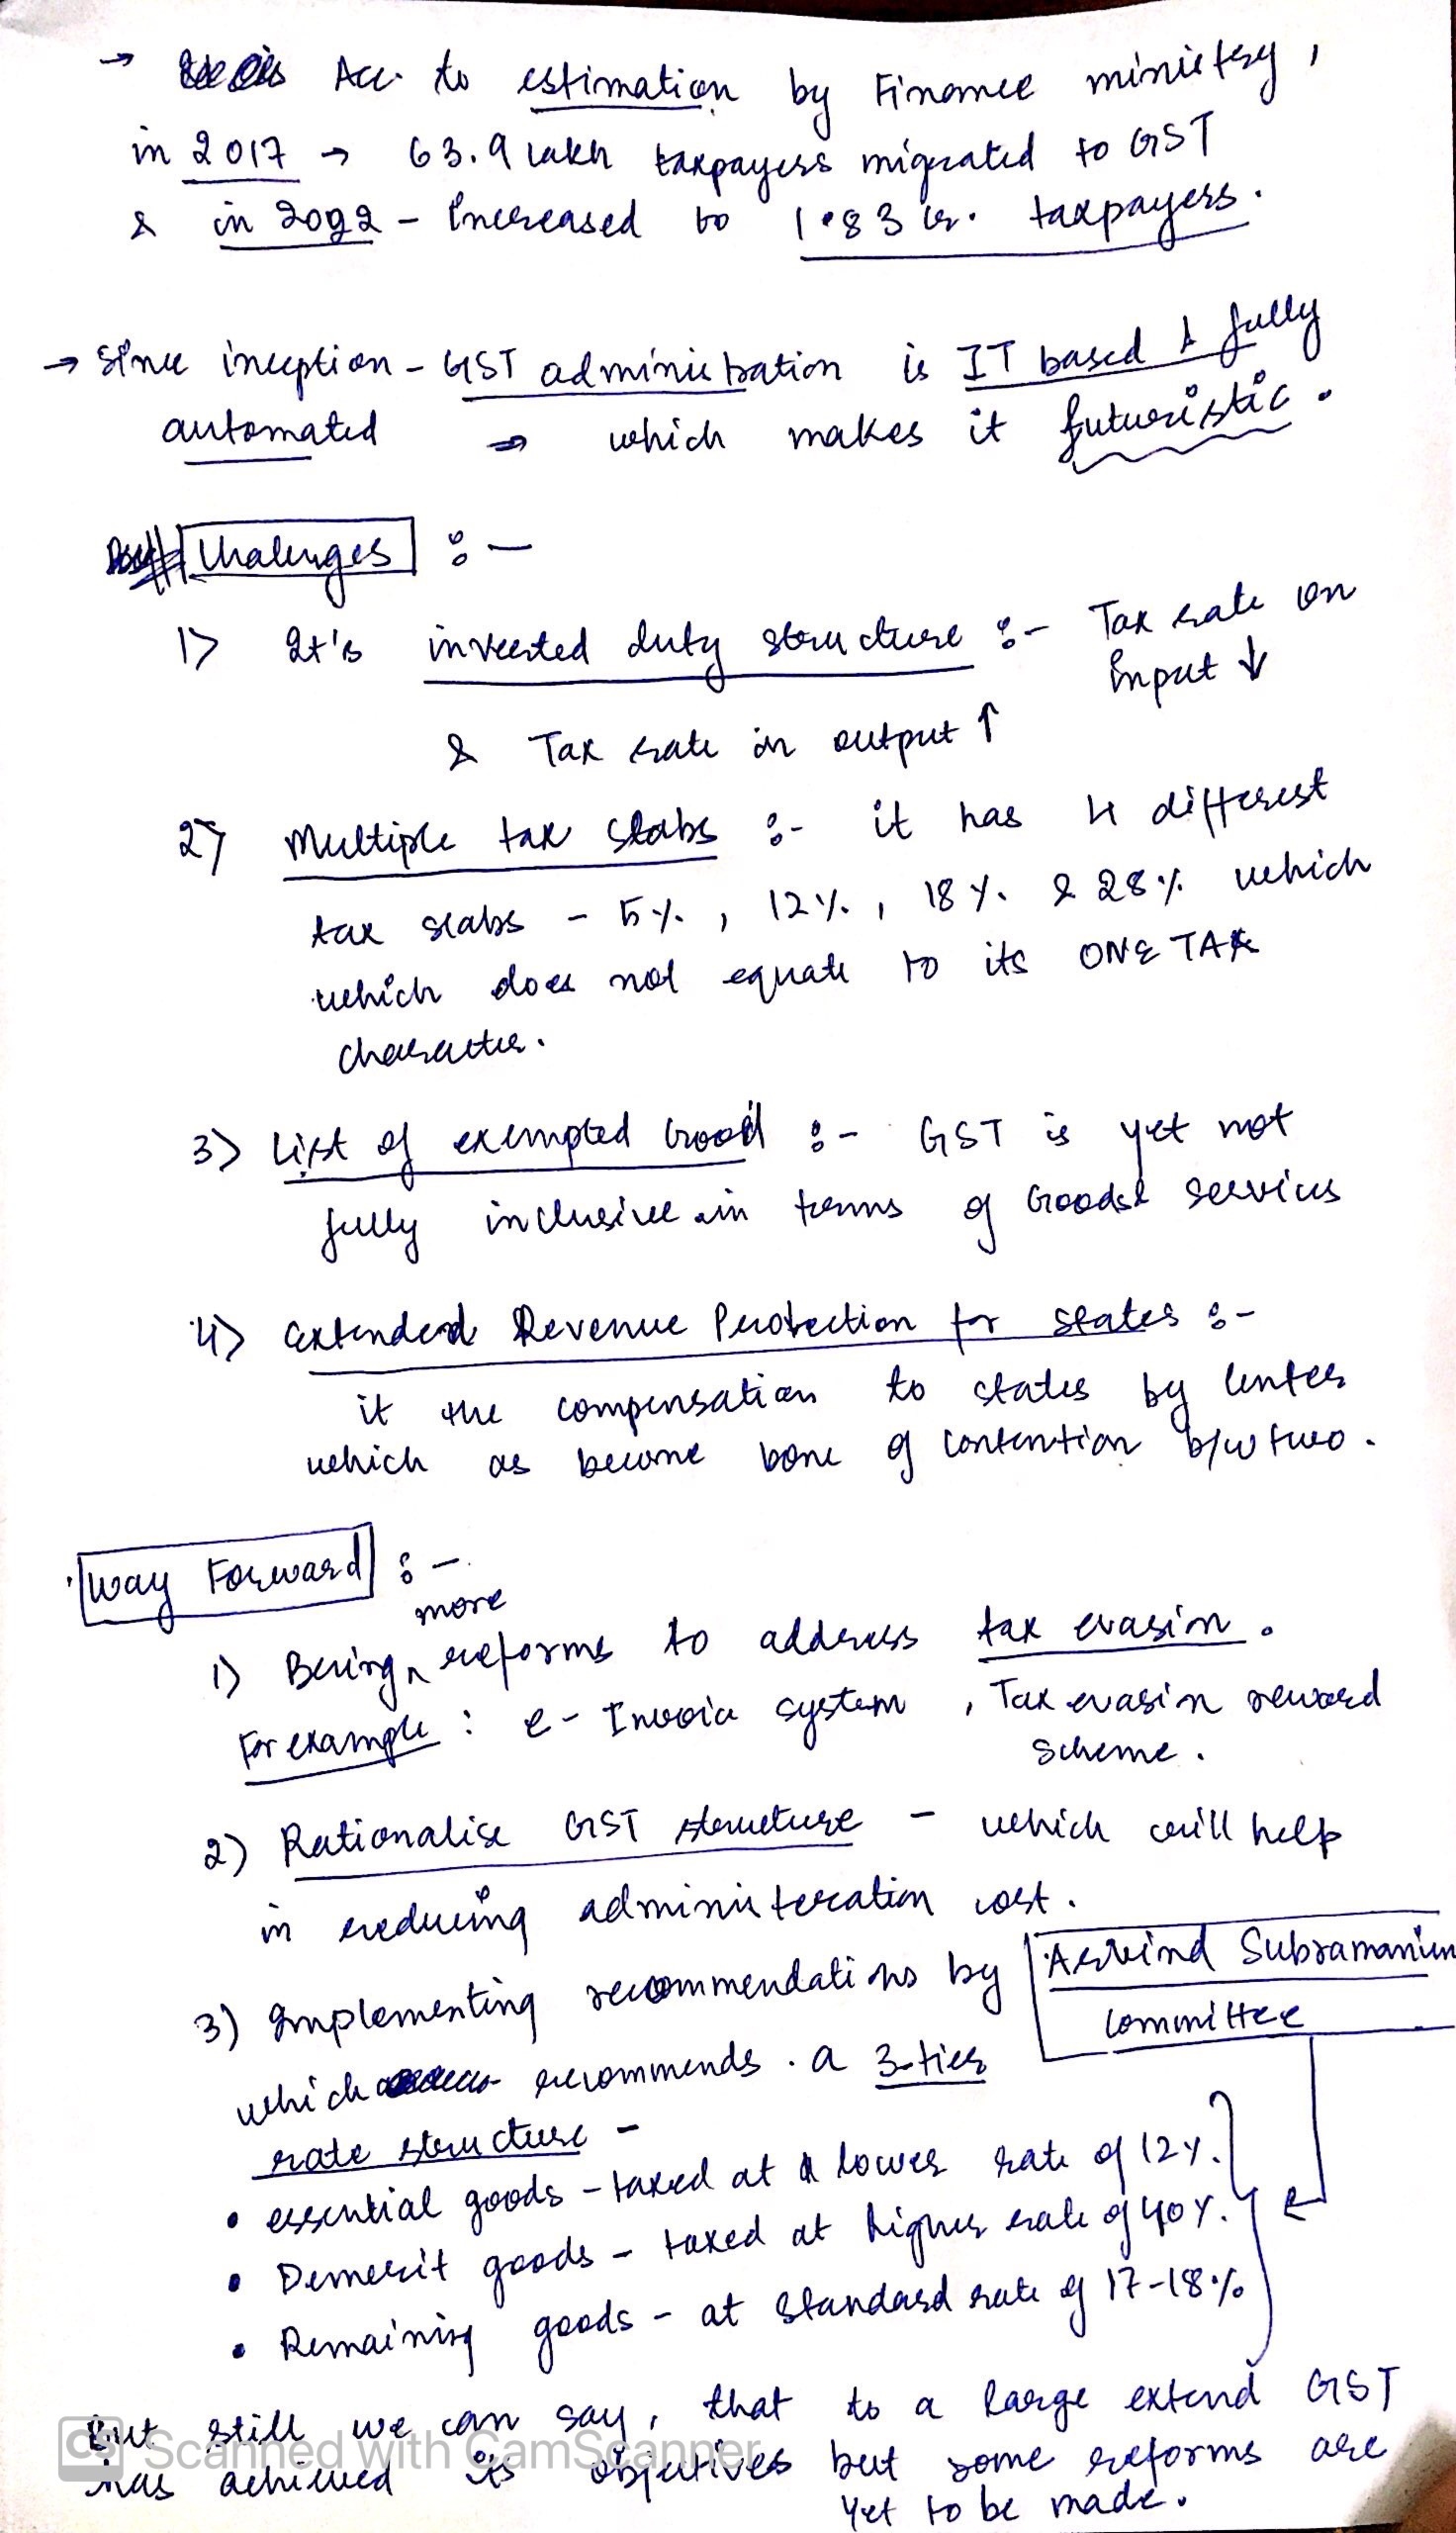 → Acc. to estimation by Finance ministry,
in 2017 → 63.9 lakh taxpayers migrated to GST
& in 2022 - Increased to 1.83 cr. taxpayers.
→ Since inception - GST administration is IT based & fully
automated → which makes it futuristic.
Challenges :-
1) It's inverted duty structure :- Tax rate on
Input ↓
& Tax rate in output ↑
2) Multiple tax slabs :- it has 4 different
tax slabs - 5%, 12%, 18% & 28% which
which does not equate to its ONE TAX
character.
3) List of exempted Good :- GST is yet not
fully inclusive in terms of Goods & services
4) Extended Revenue Protection for states :-
it the compensation to states by center
which as become bone of contention b/w two.
Way Forward :-
more
1) Bring ^ reforms to address tax evasion.
For example : e-Invoice system, Tax evasion reward
scheme.
2) Rationalise GST structure - which will help
in reducing administration cost.
3) Implementing recommendations by Arvind Subramanium
Committee
which recommends. a 3-tier
rate structure -
• essential goods - taxed at lower rate of 12%.
• Demerit goods - taxed at higher rate of 40%.
• Remaining goods - at standard rate of 17-18%
But still we can say, that to a large extend GST
has achieved its objectives but some reforms are
yet to be made.
CS Scanned with CamScanner